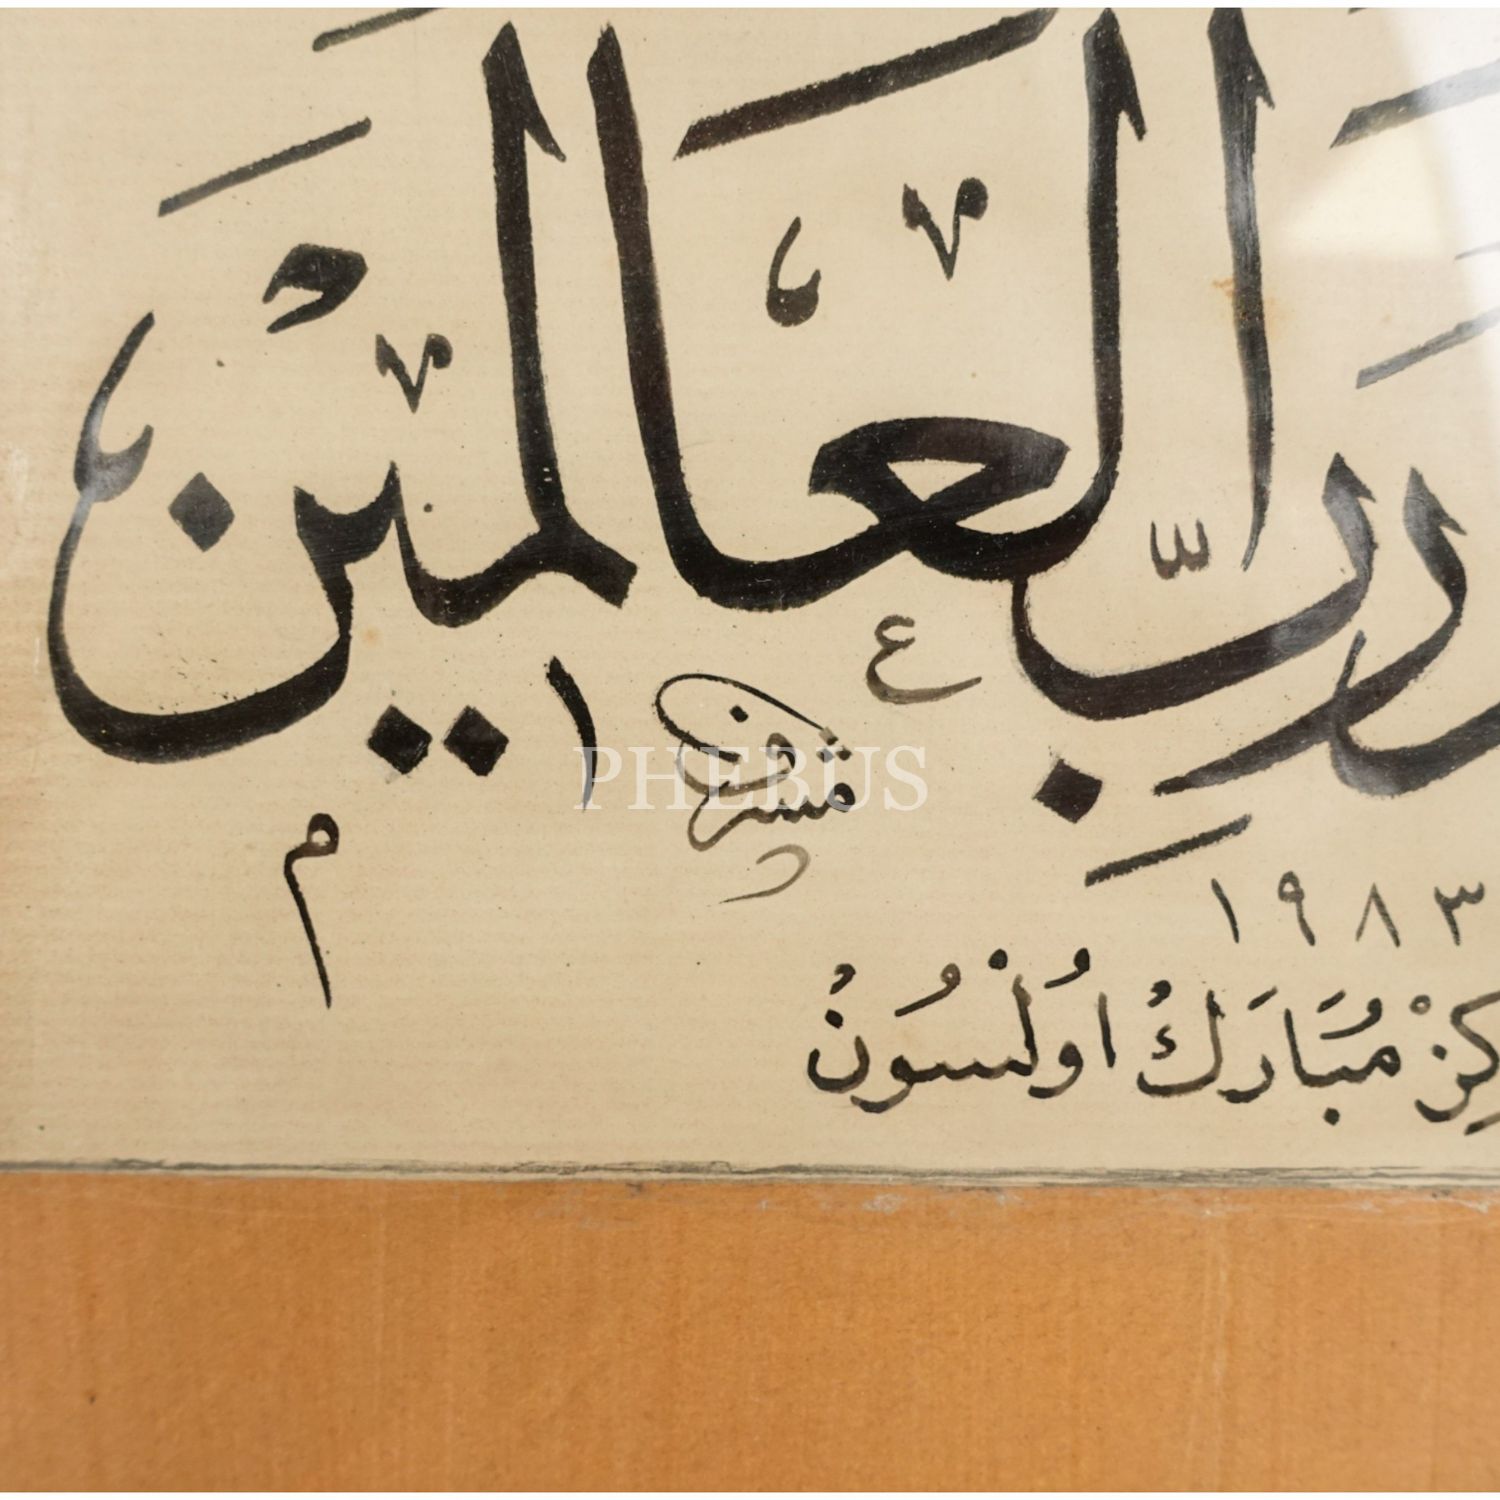 رَبِّ الْعَالَمِينَ
PHEBUS
١٩٨٣
مُبَارَكْ اُولْسُونْ